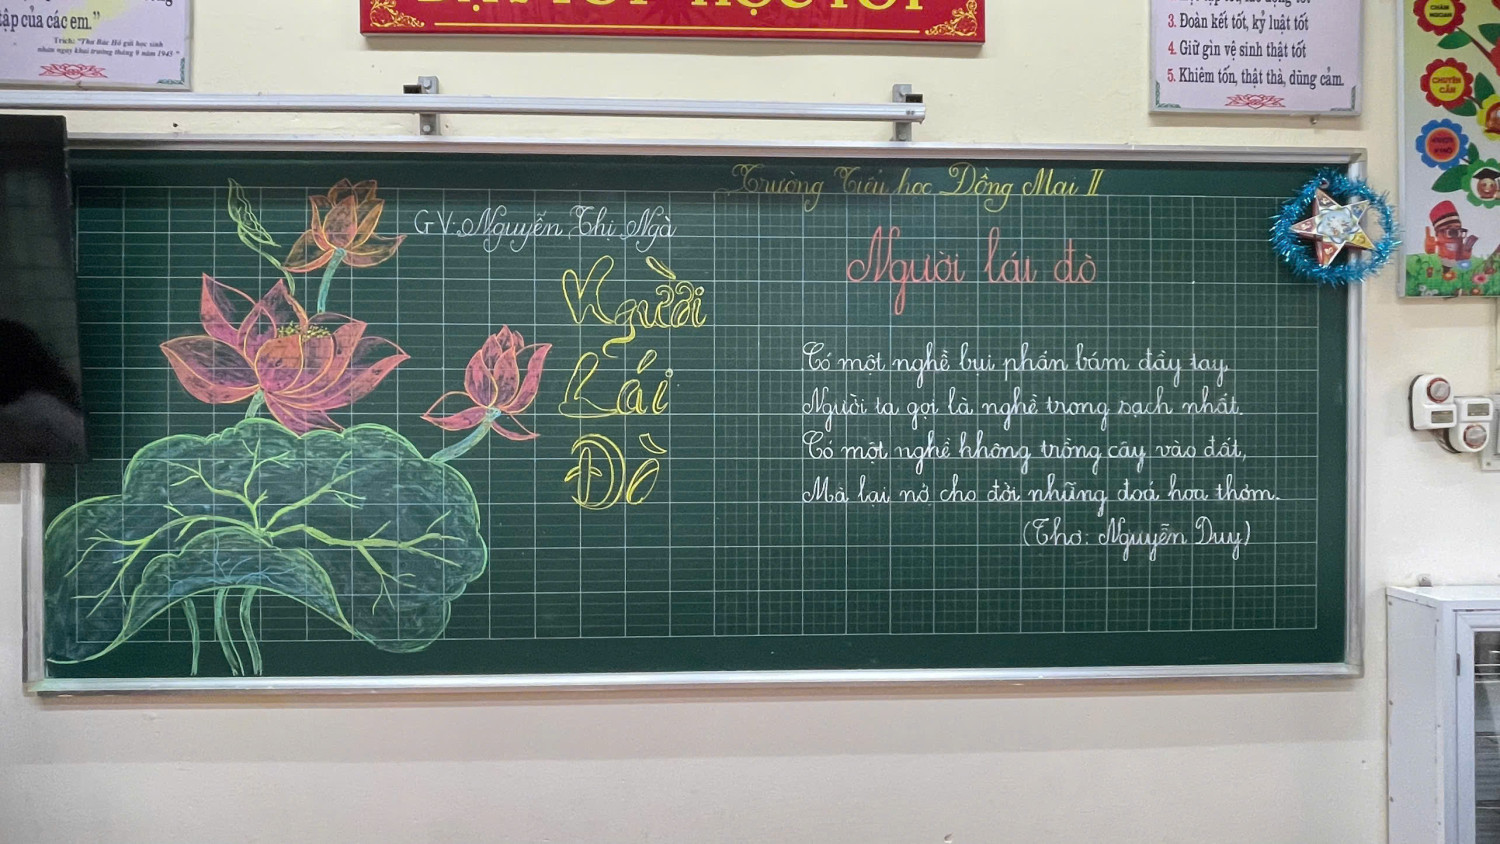 tập của các em.”
Trích: "Thư Bác Hồ gửi học sinh
nhân ngày khai trường tháng 9 năm 1945"
DẠY TỐT HỌC TỐT
3. Đoàn kết tốt, kỷ luật tốt
4. Giữ gìn vệ sinh thật tốt
5. Khiêm tốn, thật thà, dũng cảm.
CHĂM NGOAN
CHUYÊN CẦN
Trường Tiểu học Đồng Mai II
GV: Nguyễn Thị Ngà
Người
Lái
Đò
Người lái đò
Có một nghề bụi phấn bám đầy tay,
Người ta gọi là nghề trong sạch nhất.
Có một nghề không trồng cây vào đất,
Mà lại nở cho đời những đoá hoa thơm.
(Thơ: Nguyễn Duy)